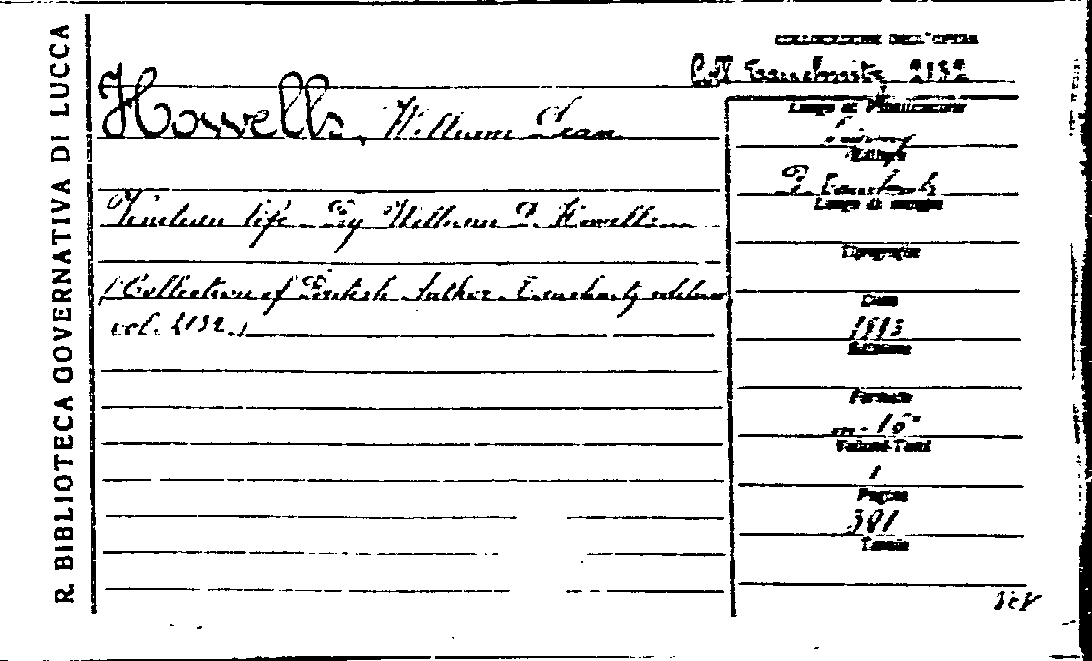 R. BIBLIOTECA GOVERNATIVA DI LUCCA
COLLOCAZIONE DELL'OPERA
Coll. Tauchnitz 2132
Howells, William Dean
Venetian life. By William D. Howells.
(Collection of British Author. Tauchnitz edition
vol. 2132.)
Luogo di Pubblicazione
Editore
B. Tauchnitz
Luogo di stampa
Tipografia
Data
Edizione
Formato
in-16°
Volumi-Tomi
1
Pagine
Tavole